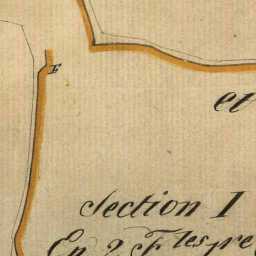 E
et
Section I
En 2 F.les 1re